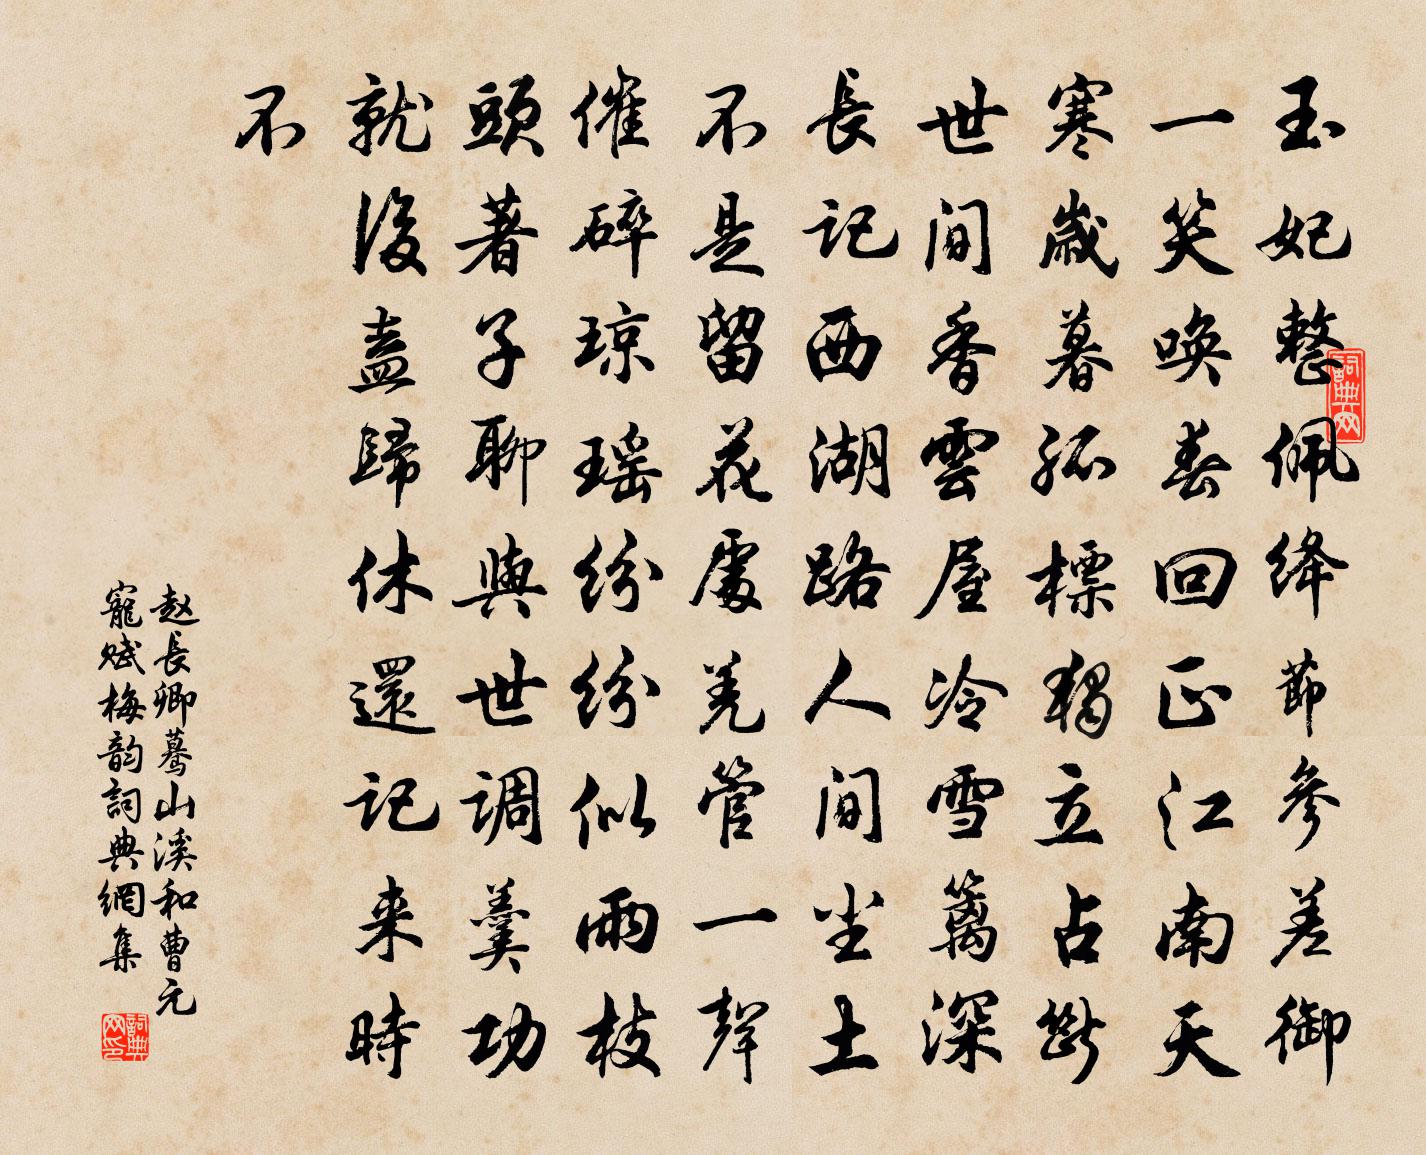 玉妃整佩绛節參差御
一笑喚春回正江南天
寒歲暮孤標獨立占斷
世間香雲屋冷雪篱深
長記西湖路人間尘土
不是留花處羌管一聲
催碎琼瑶纷纷似雨枝
頭著子聊與世調羹功
就後盍歸休還記来時
不
赵長卿驀山溪和曹元
寵赋梅韵詞典網集
詞典网
詞典网印